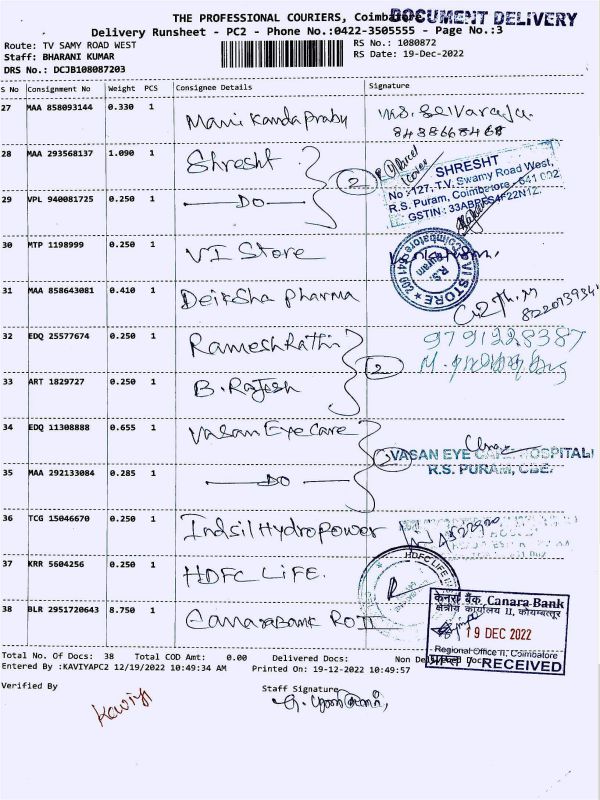 THE PROFESSIONAL COURIERS, Coimbatore
DOCUMENT DELIVERY
Delivery Runsheet - PC2 - Phone No.:0422-3505555 - Page No.:3
Route: TV SAMY ROAD WEST
RS No.: 1080872
Staff: BHARANI KUMAR
RS Date: 19-Dec-2022
DRS No.: DCJB108087203
S No Consignment No Weight PCS Consignee Details Signature
27 MAA 858093144 0.330 1 Mani Kanda Prabu
8438668468
28 MAA 293568137 1.090 1 Shresht 2
SHRESHT
No : 127, T.V. Swamy Road West,
R.S. Puram, Coimbatore - 641 002
GSTIN : 33ABRFS4F22N1Z
29 VPL 940081725 0.250 1 DO
30 MTP 1198999 0.250 1 VI Store
VI STORE
R.S. Puram
31 MAA 858643081 0.410 1 Deiksha Pharma
32 EDQ 25577674 0.250 1 Ramesh Rathi 2 9791228387
33 ART 1829727 0.250 1 B. Rajesh
34 EDQ 11308888 0.655 1 Vasan Eye Care
VASAN EYE CARE HOSPITAL
R.S. PURAM, CBE.
35 MAA 292133084 0.285 1 DO
36 TCG 15046670 0.250 1 Indsil Hydropower
37 KRR 5604256 0.250 1 HDFC LIFE.
HDFC LIFE
38 BLR 2951720643 8.750 1 Canara Bank RO II
केनरा बैंक Canara Bank
क्षेत्रीय कार्यालय II, कोयम्बत्तूर
19 DEC 2022
Regional Office II, Coimbatore
RECEIVED
Total No. Of Docs: 38 Total COD Amt: 0.00 Delivered Docs: Non Delivered Docs
Entered By :KAVIYAPC2 12/19/2022 10:49:34 AM Printed On: 19-12-2022 10:49:57
Verified By
Staff Signature
Kaviya